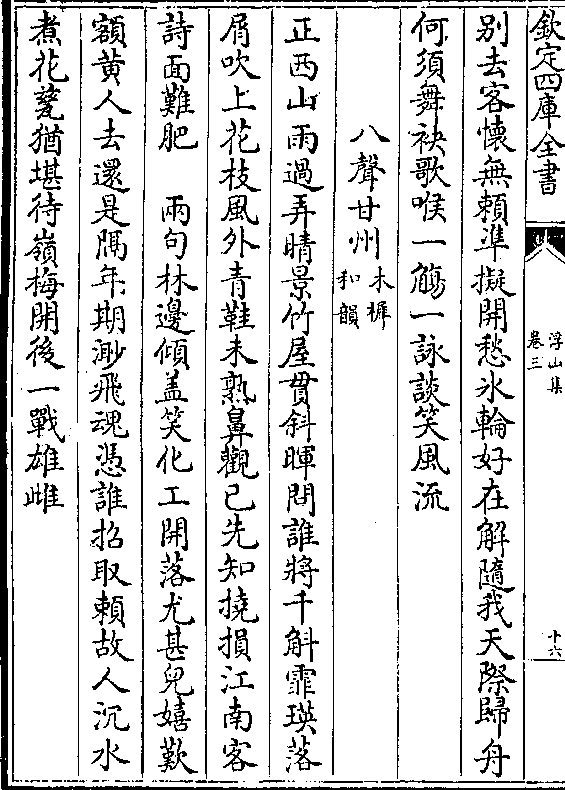 欽定四庫全書
浮山集
卷三
十六
别去客懷無賴準擬開愁氷輪好在解隨我天際歸舟
何須舞袂歌喉一觴一詠談笑風流
八聲甘州
木樨
和韻
正西山雨過弄晴景竹屋貫斜暉問誰將千斛霏瑛落
屑吹上花枝風外青鞋未熟鼻觀已先知撓損江南客
詩面難肥　兩句林邊傾盖笑化工開落尤甚兒嬉歎
額黄人去還是隔年期渺飛魂憑誰招取賴故人沉水
煮花甆猶堪待嶺梅開後一戰雄雌